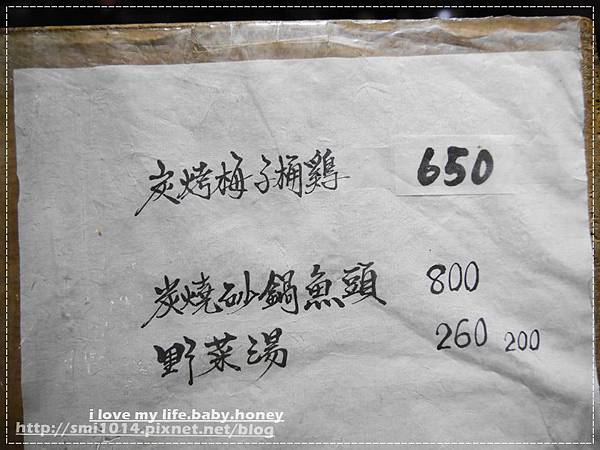 炭烤梅子桶鷄 650
炭燒砂鍋魚頭 800
野菜湯 260 200
i love my life.baby.honey
http://smi1014.pixnet.net/blog